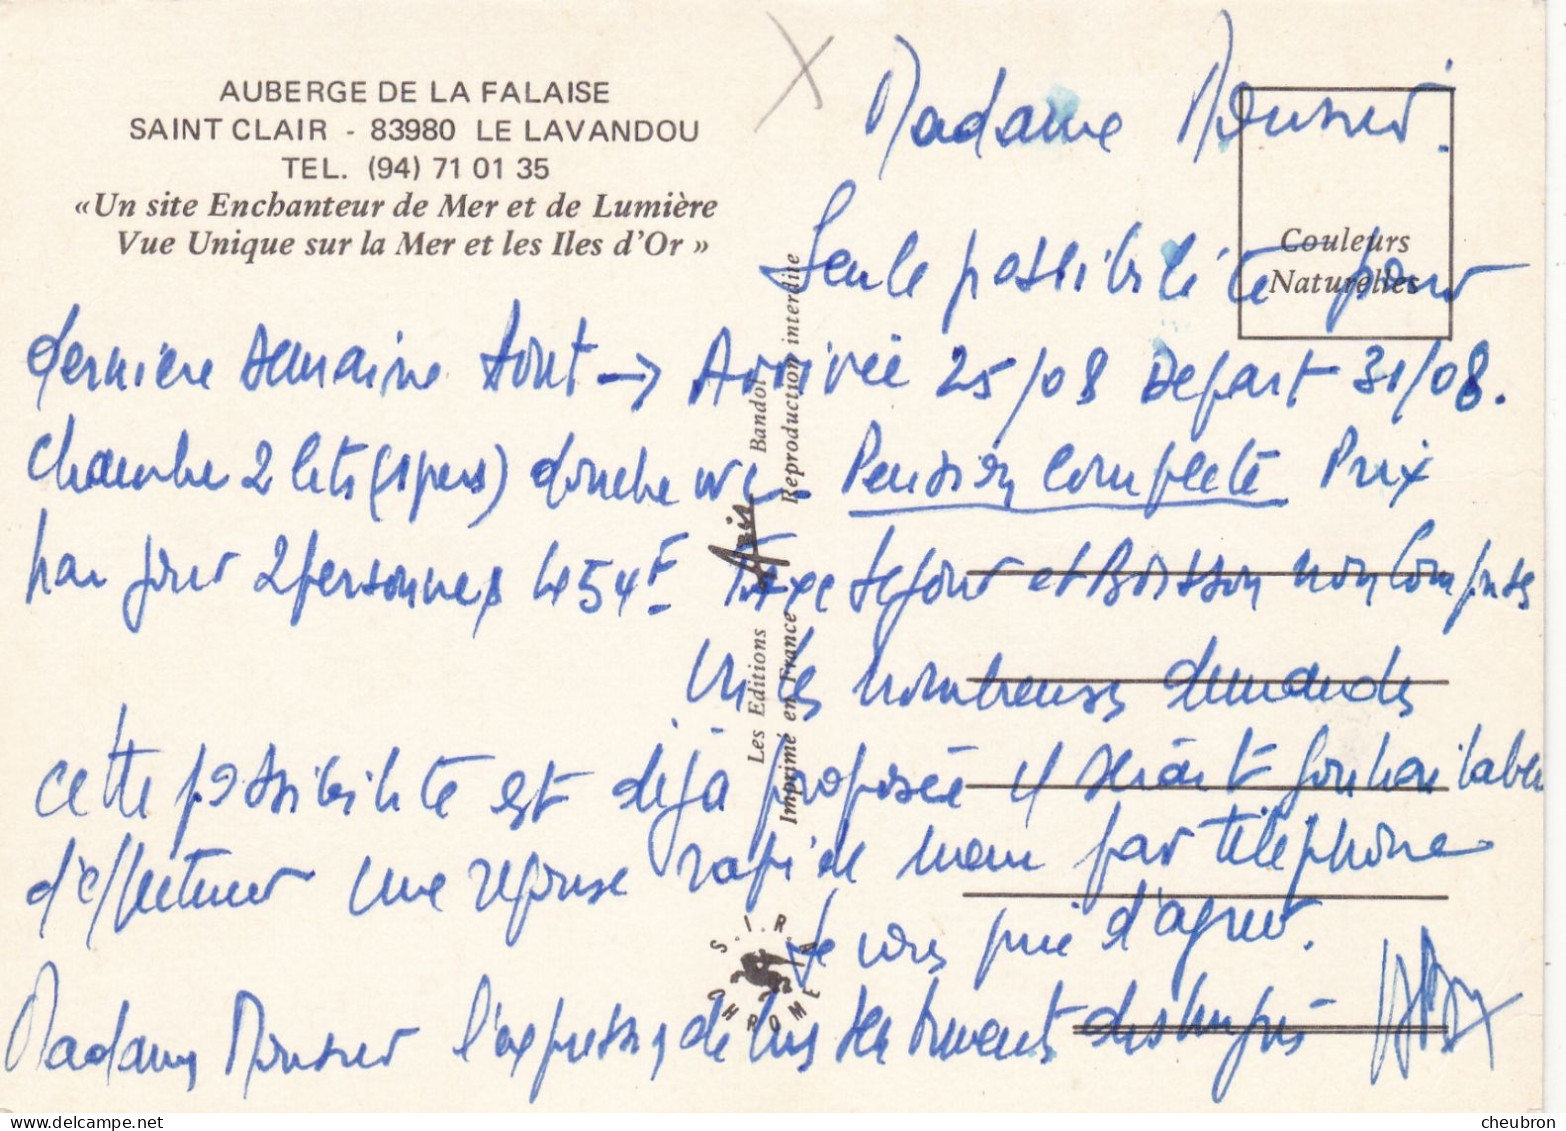 AUBERGE DE LA FALAISE
SAINT CLAIR - 83980 LE LAVANDOU
TEL. (94) 71 01 35
«Un site Enchanteur de Mer et de Lumière
Vue Unique sur la Mer et les Iles d'Or »
Couleurs
Naturelles
Madame Monsieur.
Seule possibilité pour
dernière semaine Août → Arrivée 25/08 Départ 31/08.
Chambre 2 lits (1 pers) douche WC - Pension Complète Prix
par jour 2 personnes 454F - Taxe séjour et Boisson non Comprises
Vu les nombreuses demandes
cette possibilité est déjà proposée il serait souhaitable
d'effectuer une réponse rapide par téléphone
Je vous prie d'agréer.
Madame Monsieur l'expression de mes sentiments distingués
Les Editions Aris Bandol
Imprimé en France Reproduction interdite
S.I.R.A
CHROME
cheubron